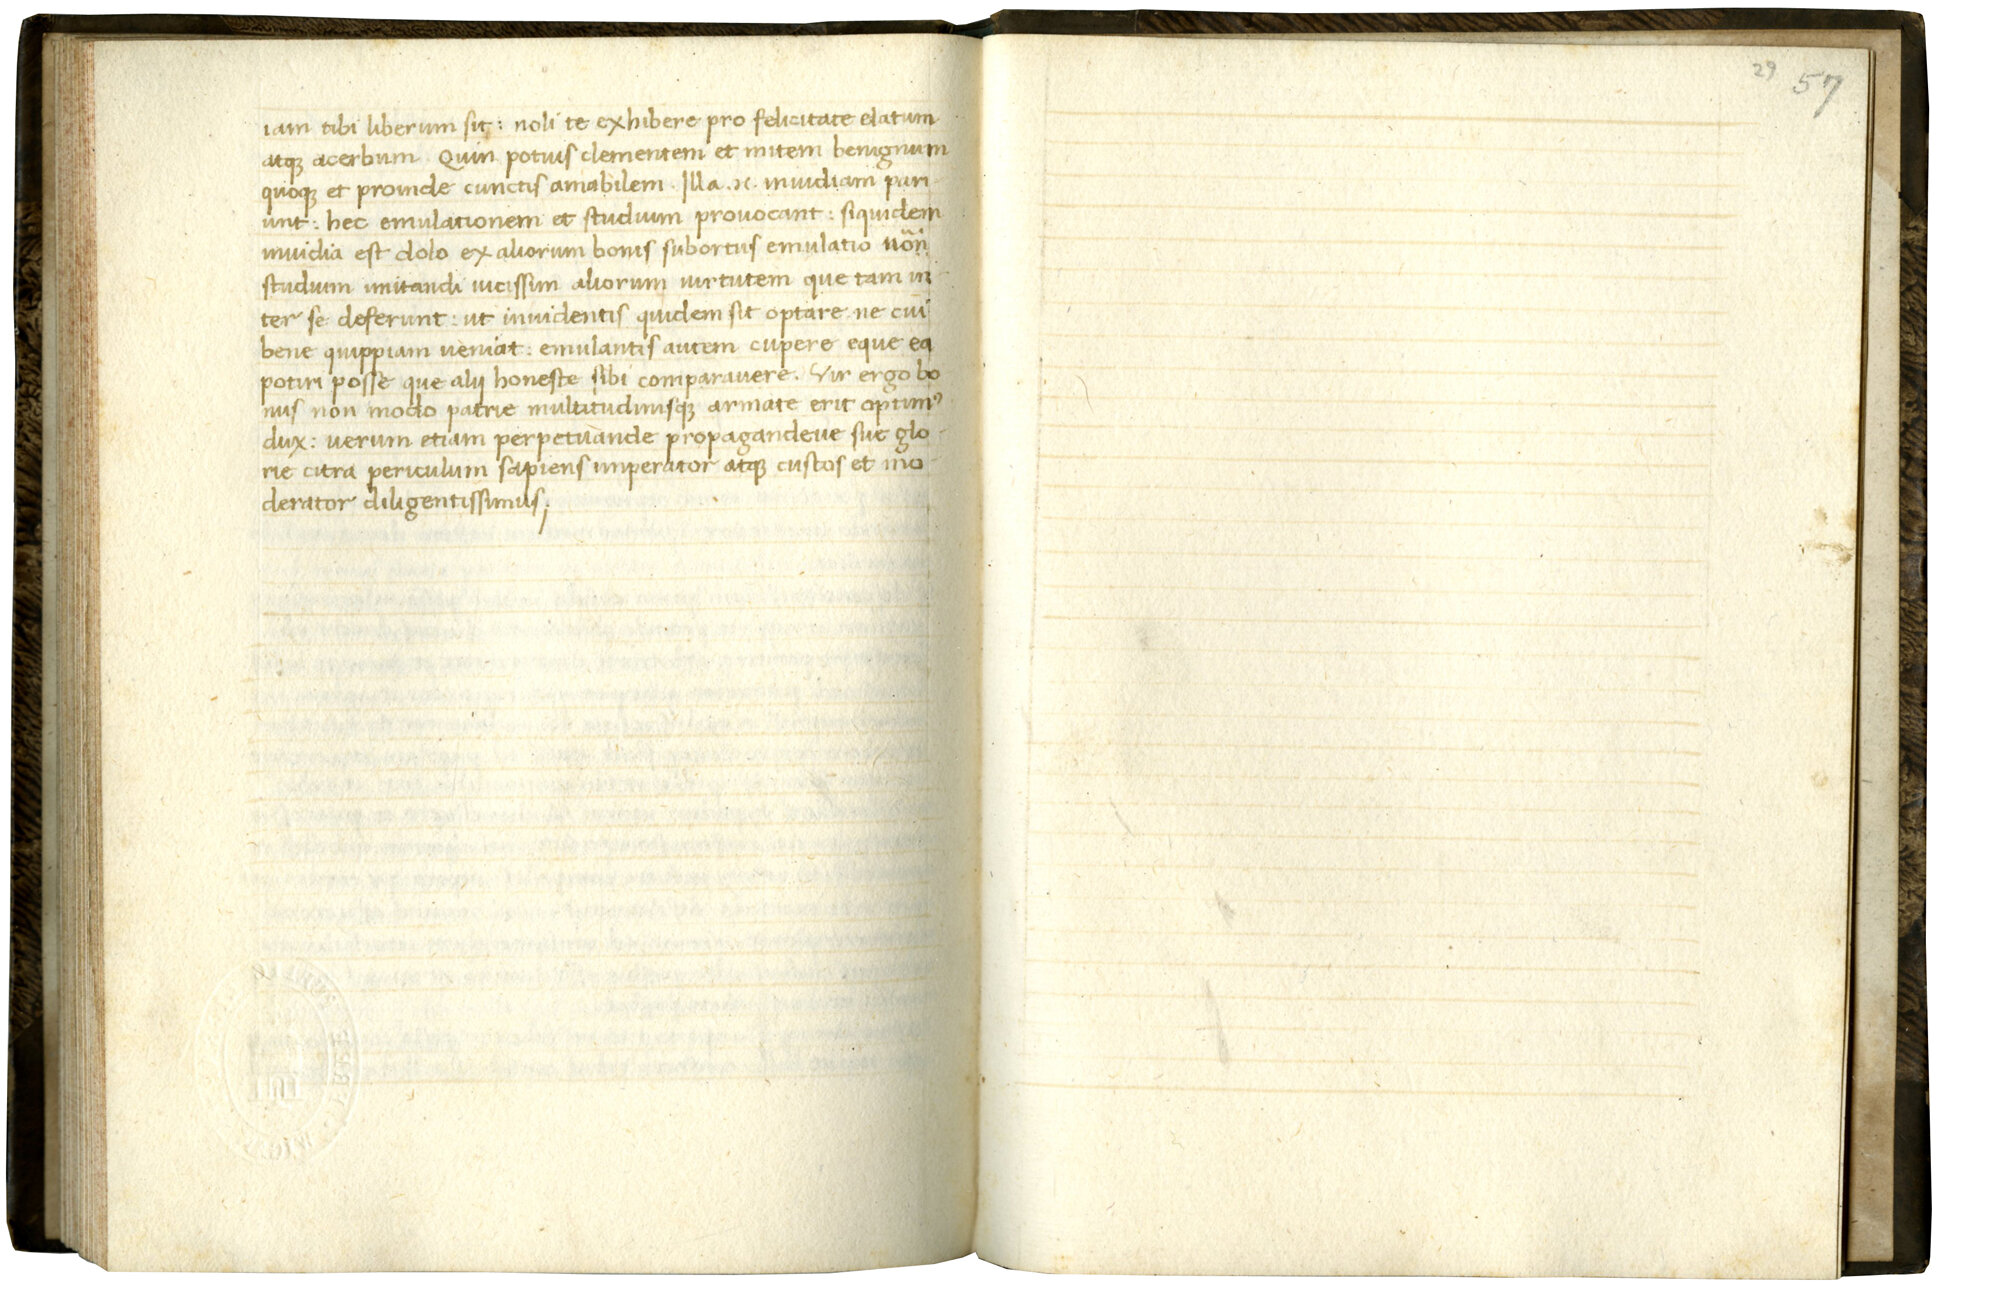 iam tibi liberum sit: noli te exhibere pro felicitate elatum
atqꝫ acerbum. Quin potius clementem et mitem benignum
quoqꝫ et proinde cunctis amabilem. Illa .n. inuidiam pari
unt: hec emulationem et studium prouocant: siquidem
inuidia est dolo ex aliorum bonis subortus emulatio
studium imitandi uicissim aliorum uirtutem que tam in
ter se deferunt: ut inuidentis quidem sit optare ne cui
bene quippiam ueniat: emulantis autem cupere eque ea
potiri posse que alij honeste sibi comparauere. Vir ergo bo
nus non modo patrie multitudinisqꝫ armate erit optimꝰ
dux: uerum etiam perpetuande propagandeue sue glo
rie citra periculum sapiens imperator atqꝫ custos et mo
derator diligentissimus;
29 57